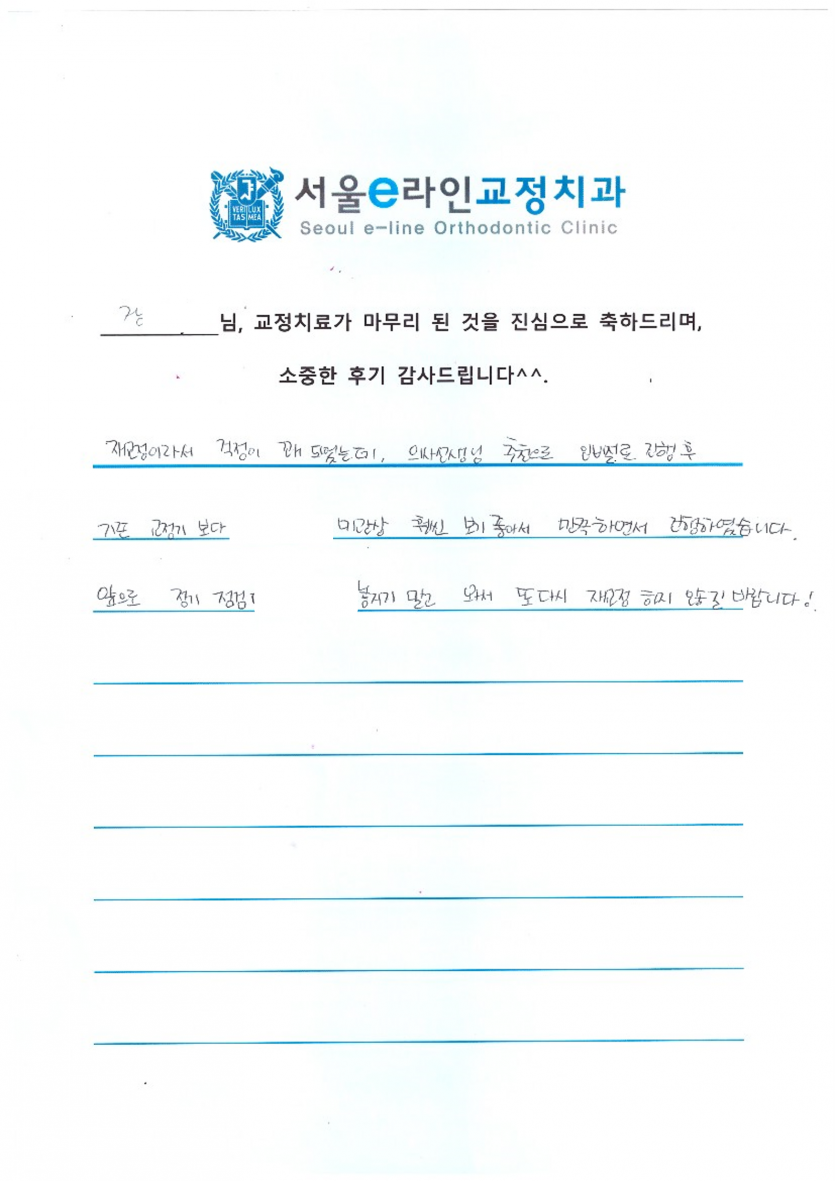 VERI LUX TAS MEA
서울e라인교정치과
Seoul e-line Orthodontic Clinic
강 님, 교정치료가 마무리 된 것을 진심으로 축하드리며,
소중한 후기 감사드립니다^^.
재교정이라서 걱정이 꽤 되었는데, 의사선생님 추천으로 인비절로 진행 후
기존 교정기 보다 미관상 훨씬 보기 좋아서 만족하면서 진행하였습니다.
앞으로 정기 점검 놓치기 말고 와서 또 다시 재교정 하지 바랍니다!